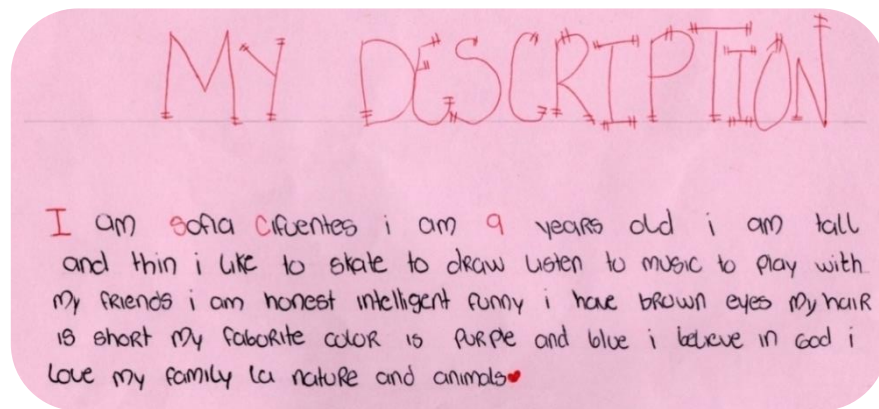 MY DESCRIPTION
I am sofia cifuentes i am 9 years old i am tall
and thin i like to skate to draw listen to music to play with
my friends i am honest intelligent funny i have brown eyes my hair
is short my faborite color is purple and blue i believe in God i
love my family la nature and animals